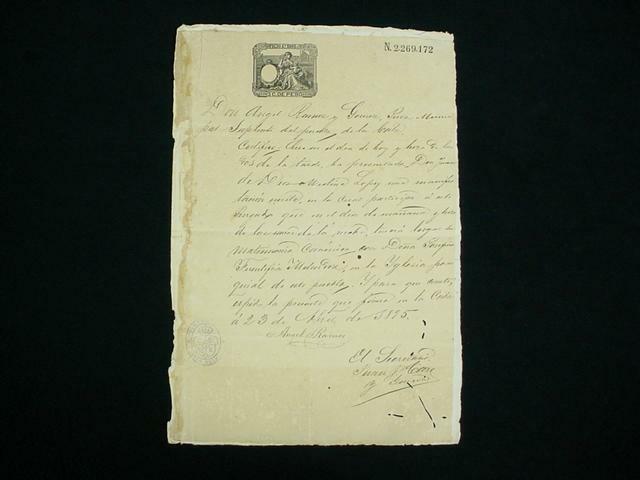 N. 2.269.172
C. DE PESO
Don Angel Ramos y Gomez, Juez Munici
pal Suplente del pueblo de la Coste.
Certifico: Que en el dia de hoy y hora de las
dos de la tarde, ha presentado Don Juan
de Dios Medina Lopez una manifes
tacion escrita, en la cual participa á este
Juzgado que en el dia de mañana y hora
de las nueve de la noche, tendrá lugar su
matrimonio Canónico con Doña
en la Yglesia parro
quial de este pueblo. Y para que conste,
expido la presente que firmo en la
á 23 de Abril de 1895.
Angel Ramos
El Secretario
Juan